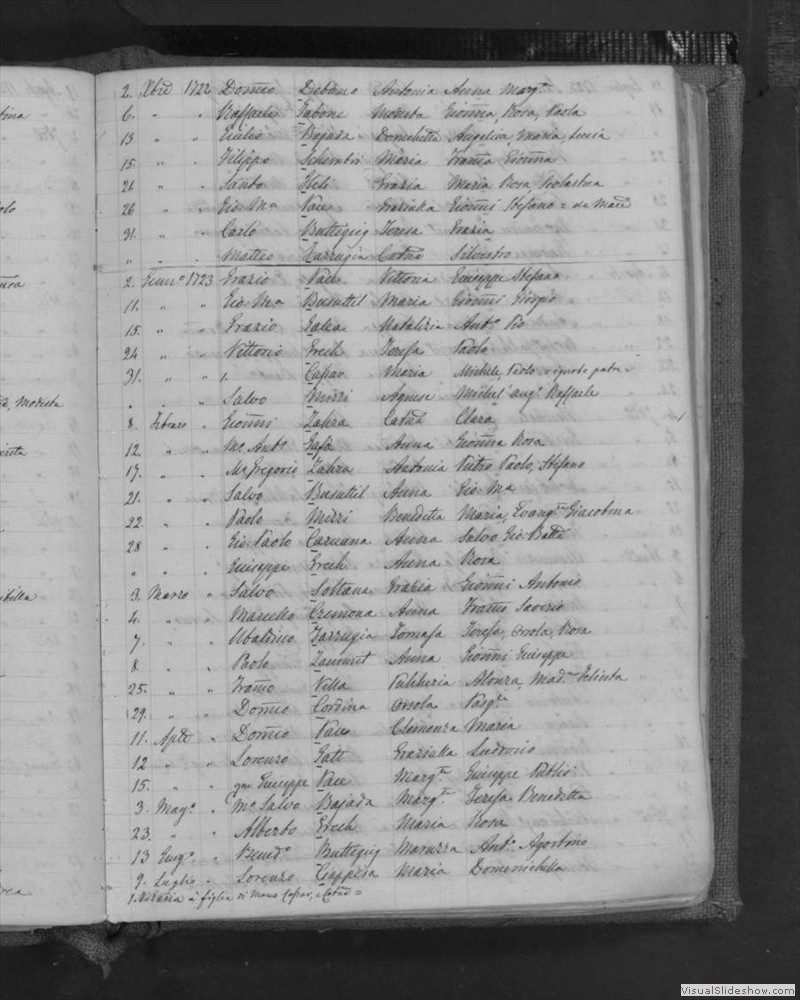 2. Xbre 1722 Domco Debono Antonia Anna Margta
6. " " Raffaele Gabone Modesta Gionna, Rosa, Paola
13 " " Giulio Bajada Domchetta Angelica, Maria, Lucia
15. " " Filippo Schembri Maria Franca Gionna
21 " " Santo Maria Rosa
26 " " Gio: Ma Pace Graziulla Gionni Stefano =
31. " " Carlo Buttigieg Teresa Grazia
" " " Matteo Farrugia Catna Silvestro
2. Genno 1723 Grazio Pace Vittoria Giuseppe Stefano
11. " " Gio: Ma Busuttil Maria Gionni Giorgio
15. " " Grazio Galea Natalizia Anto Pio
24 " " Vittorio Grech Teresa Paolo
31. " " 1. Caspar Maria Michele, Paolo = ignoto patre =
" " " Salvo Mizzi Agnese Michel' Ango Raffaele
8. Febraro " Gionni Zahra Catna Clara
12. " " Mo Anto Safà Anna Gionna Rosa
17. " " Mo Gregorio Zahra Antonia Pietro Paolo, Stefano
21. " " Salvo Busuttil Anna Gio: Ma
22. " " Paolo Mizzi Benedetta Maria, Evangta Giacobina
28 " " Gio: Paolo Caruana Anna Salvo Gio: Batta
" " " Giuseppe Grech Anna Rosa
3. Marzo " Salvo Soltana Grazia Gionni Antonio
4. " " Marcello Cremona Anna Franco Saverio
7. " " Ubaldino Farrugia Tomasa Teresa, Orsola, Rosa
8. " " Paolo Zammit Anna Gionni Giuseppe
25. " " Franco Vella Pulcheria Alonza, Madna Felicita
29. " " Domco Cordina Orsola Pasqle
11. Aple " Domco Pace Clemenza Maria
12 " " Lorenzo Gatt Graziulla Ludovico
15. " " qm Giuseppe Pace Margta Giuseppe Publio
3. Mago " Mo Salvo Bajada Margta Teresa Benedetta
23. " " Alberto Grech Maria Rosa
13 Giugo " Benedo Buttigieg Maruzza Anto Agostino
9. Luglio " Lorenzo Cieppisa Maria Domenichella
1. è figlia di Caspar, e Catna =